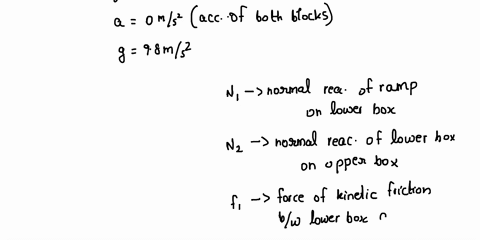 a = 0 m/s² (acc. of both blocks)
g = 9.8 m/s²
N₁ -> normal reac. of ramp
on lower box
N₂ -> normal reac. of lower box
on upper box
f₁ -> force of kinetic friction
b/w lower box